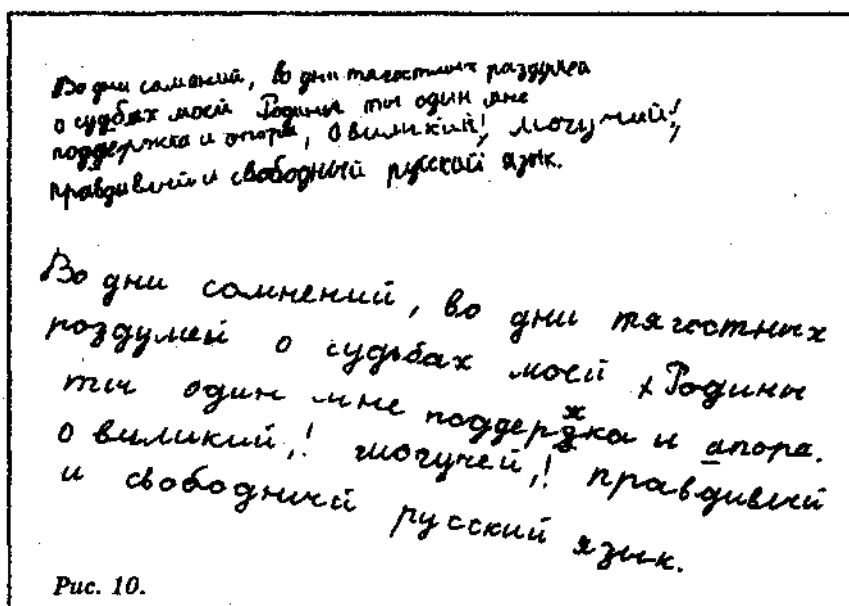 Во дни самнений, во дни тягостных раздумей
о судьбах моей Родины ты один мне
поддержка и опора, о виликий! могучий!,
правдивый и свободный русский язык.
Во дни самнений, во дни тягостных
роздумей о судьбах моей Родины
ты один мне поддержка и апора.
о виликий,! могучей,! правдивый
и свободный русский язык.
Рис. 10.